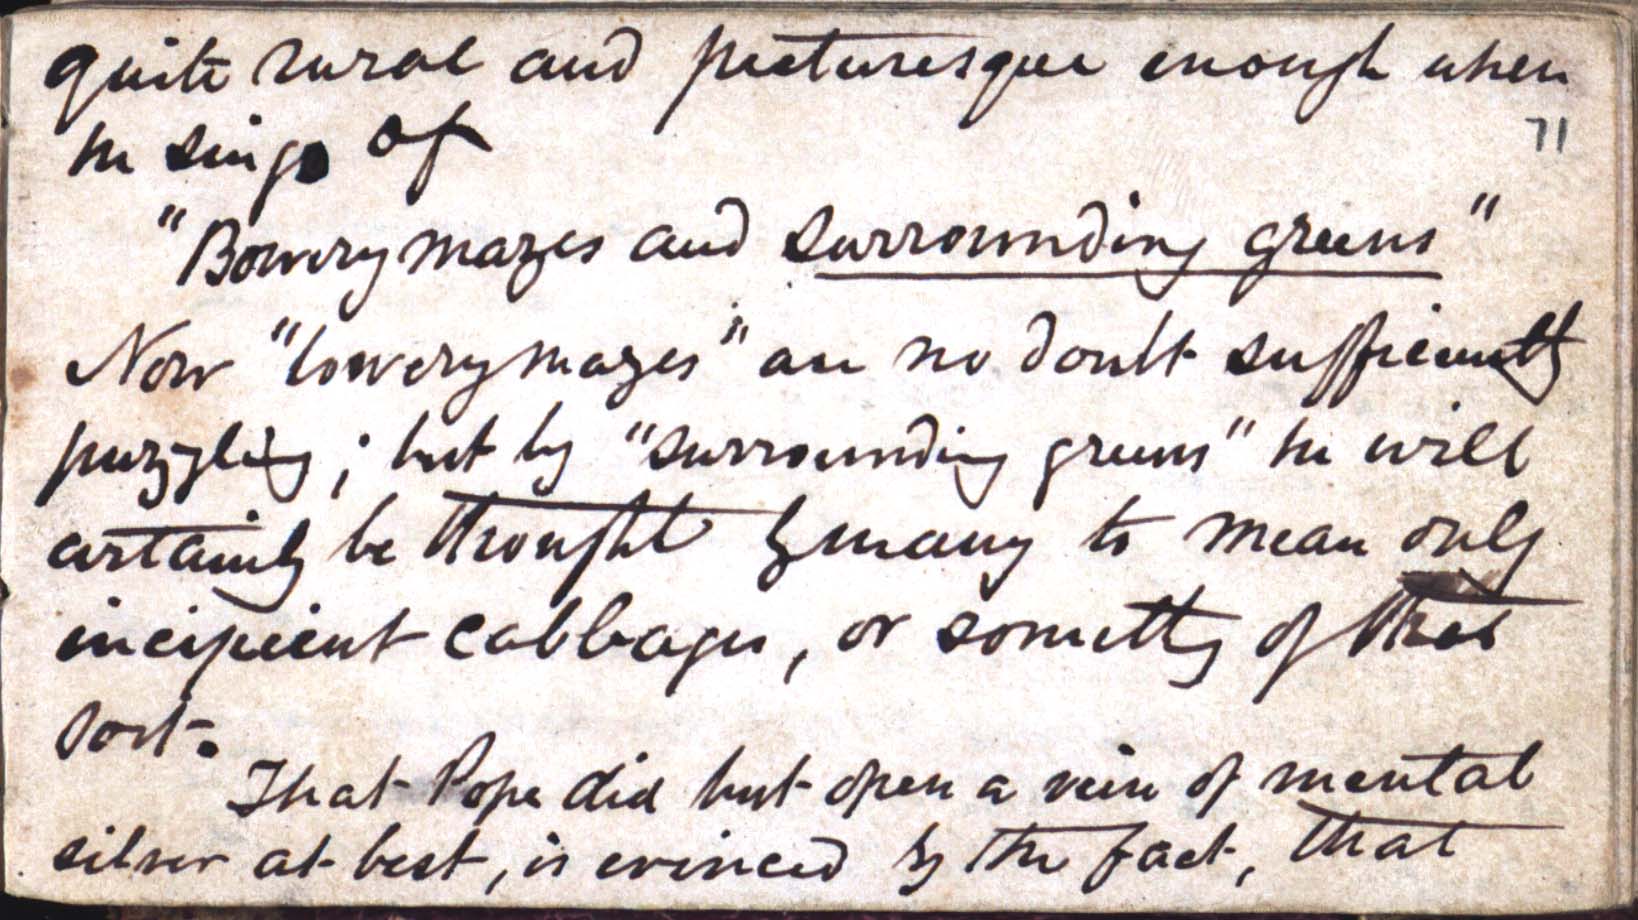 quite rural and picturesque enough when
he sings of
71
"Bowery mazes and surrounding greens"
Now "bowery mazes" are no doubt sufficiently
puzzling; but by "surrounding greens" he will
certainly be thought by many to mean only
incipient cabbages, or something of that
sort.
That Pope did but open a vein of mental
silver at best, is evinced by the fact, that